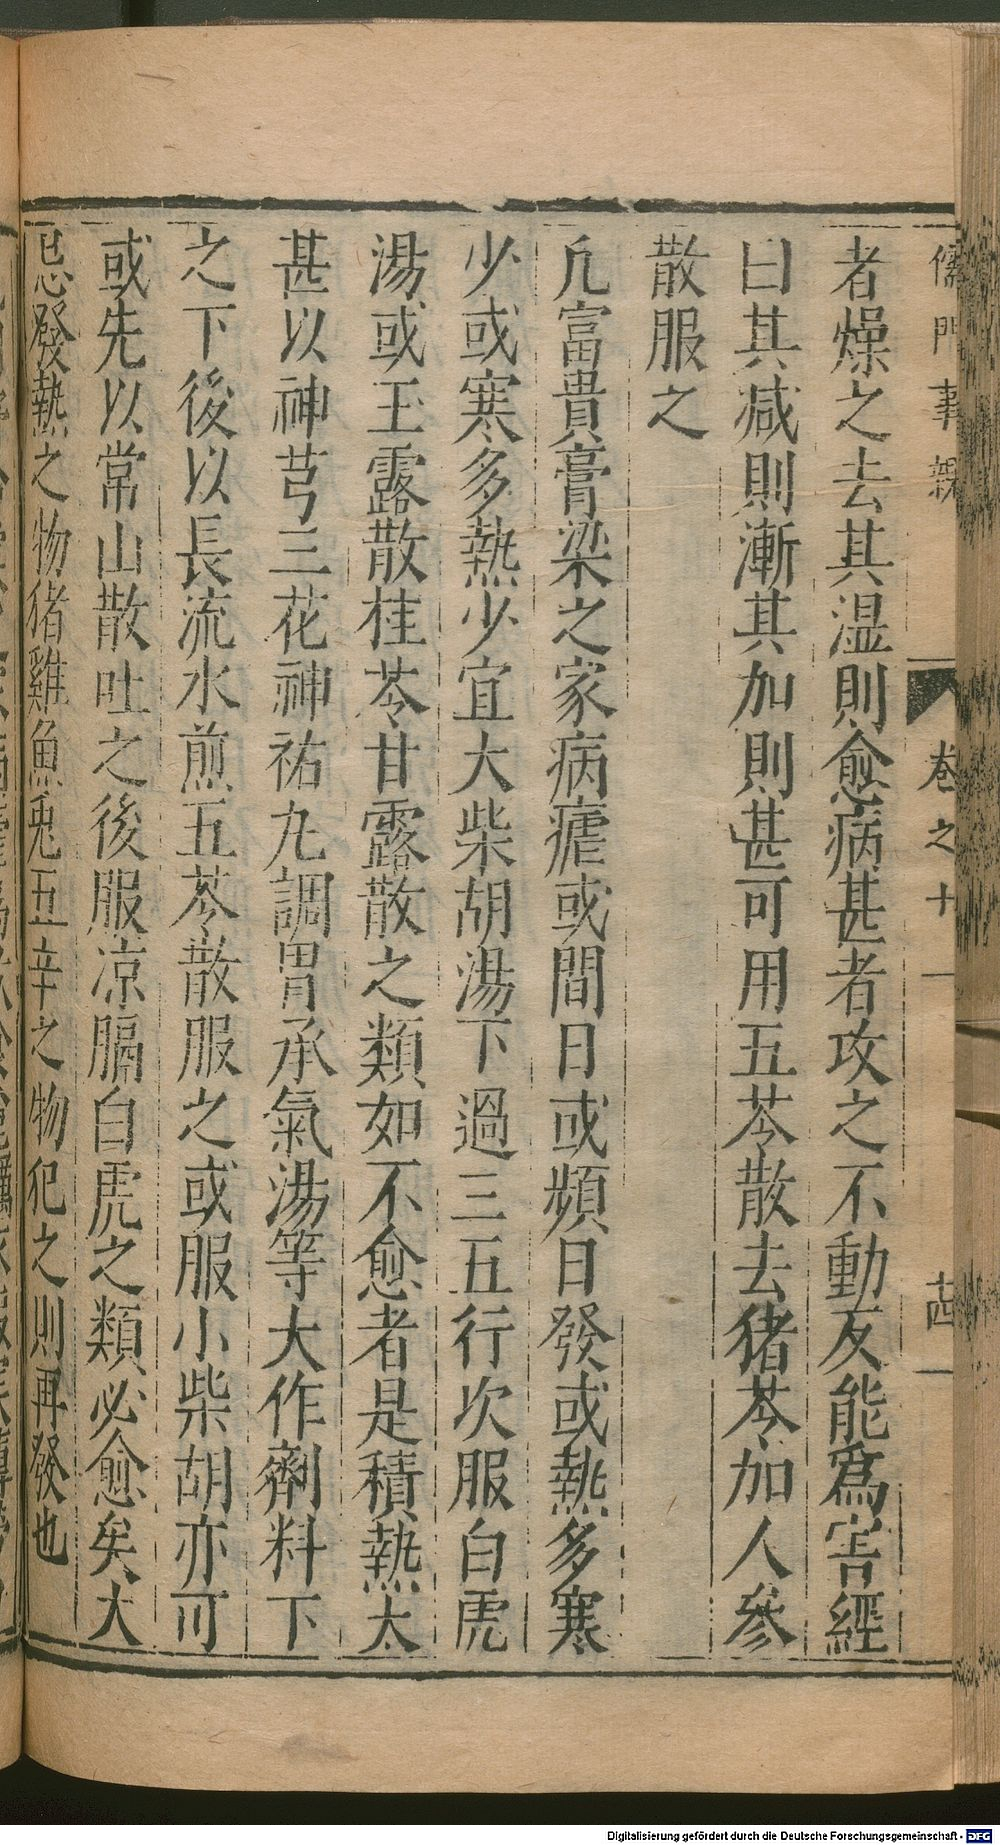 儒門事親 卷之十一 十四
者燥之去其湿則愈病甚者攻之不動反能爲害經
曰其减則漸其加則甚可用五苓散去猪苓加人參
散服之
凢富貴膏梁之家病瘧或間日或頻日發或熱多寒
少或寒多熱少宜大柴胡湯下過三五行次服白虎
湯或玉露散桂苓甘露散之類如不愈者是積熱太
甚以神芎三花神祐九調胃承氣湯等大作劑料下
之下後以長流水煎五苓散服之或服小柴胡亦可
或先以常山散吐之後服凉膈白虎之類必愈矣大
忌發熱之物猪雞魚兎五辛之物犯之則再發也
Digitalisierung gefördert durch die Deutsche Forschungsgemeinschaft - DFG